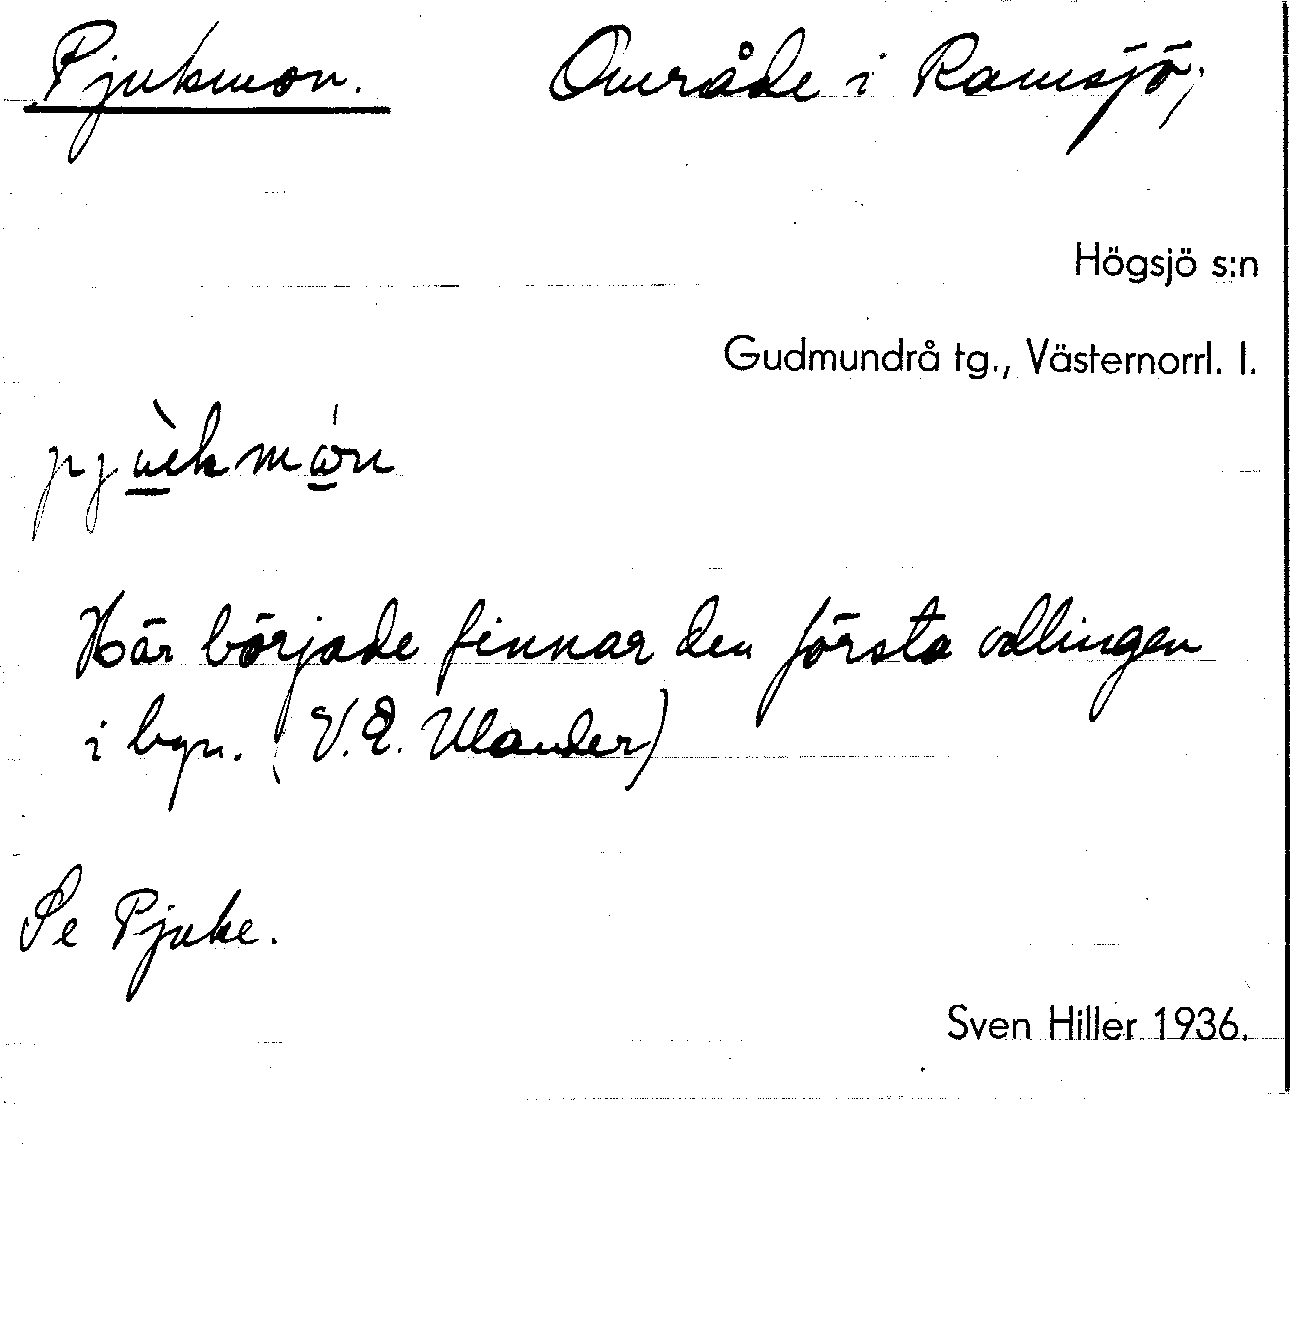 Pjukmon. Område i Ramsjö,
Högsjö s:n
Gudmundrå tg., Västernorrl. l.
Här började finnar den första odlingen
i byn. (V.E. Ulander)
Se Pjuke.
Sven Hiller 1936.